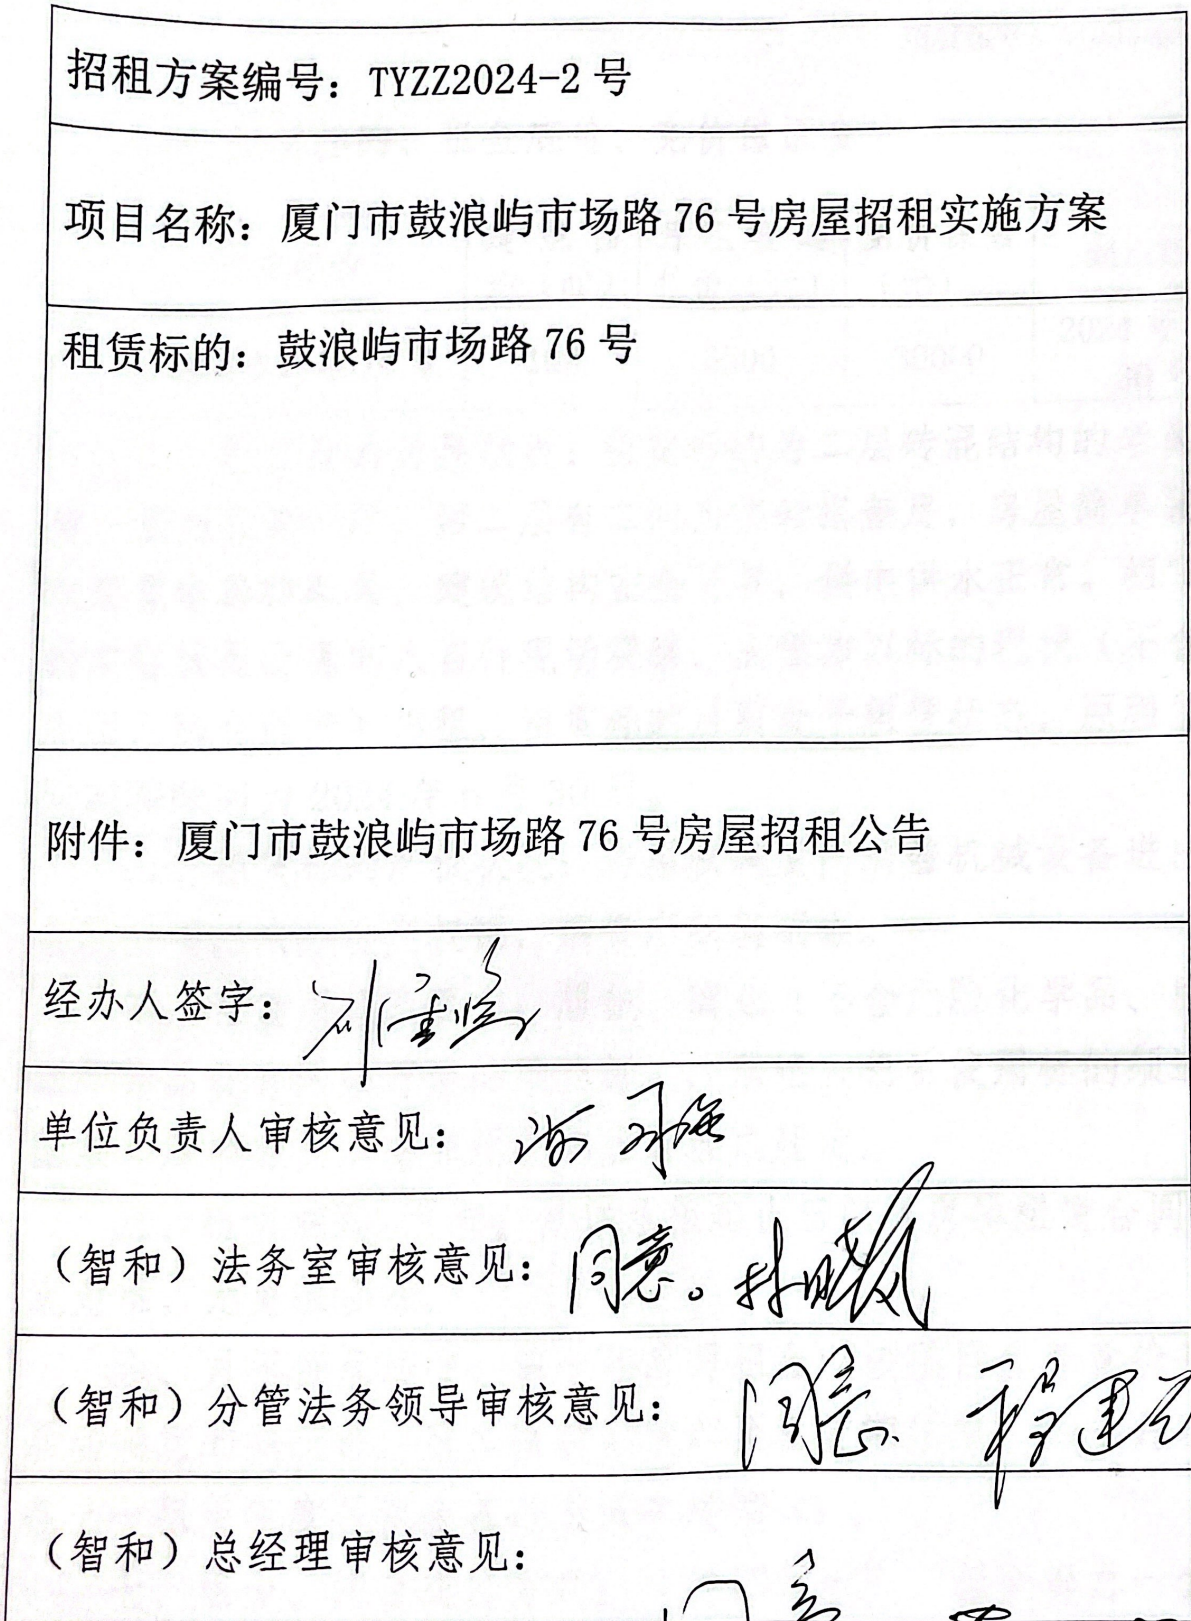 招租方案编号：TYZZ2024-2号
项目名称：厦门市鼓浪屿市场路76号房屋招租实施方案
租赁标的：鼓浪屿市场路76号
附件：厦门市鼓浪屿市场路76号房屋招租公告
经办人签字：
单位负责人审核意见：
（智和）法务室审核意见：同意。林晓岚
（智和）分管法务领导审核意见：同意 程建
（智和）总经理审核意见：